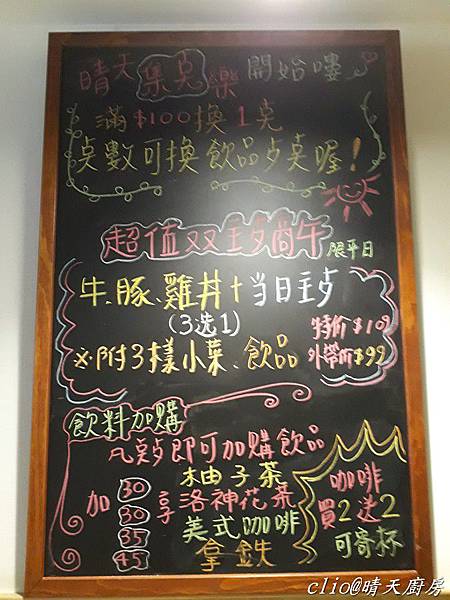 晴天集点樂開始嘍
滿$100換1点
点數可換飲品或桌喔！
超值双主攻商午 限平日
牛、豚、雞丼+当日主攻
(3选1)
特价$109
※附3樣小菜、飲品
外帶价$99
飲料加購
凡点即可加購飲品
加 30 享 柚子茶
30 洛神花茶
35 美式咖啡
45 拿鉄
咖啡
買2送2
可寄杯
clio@晴天廚房